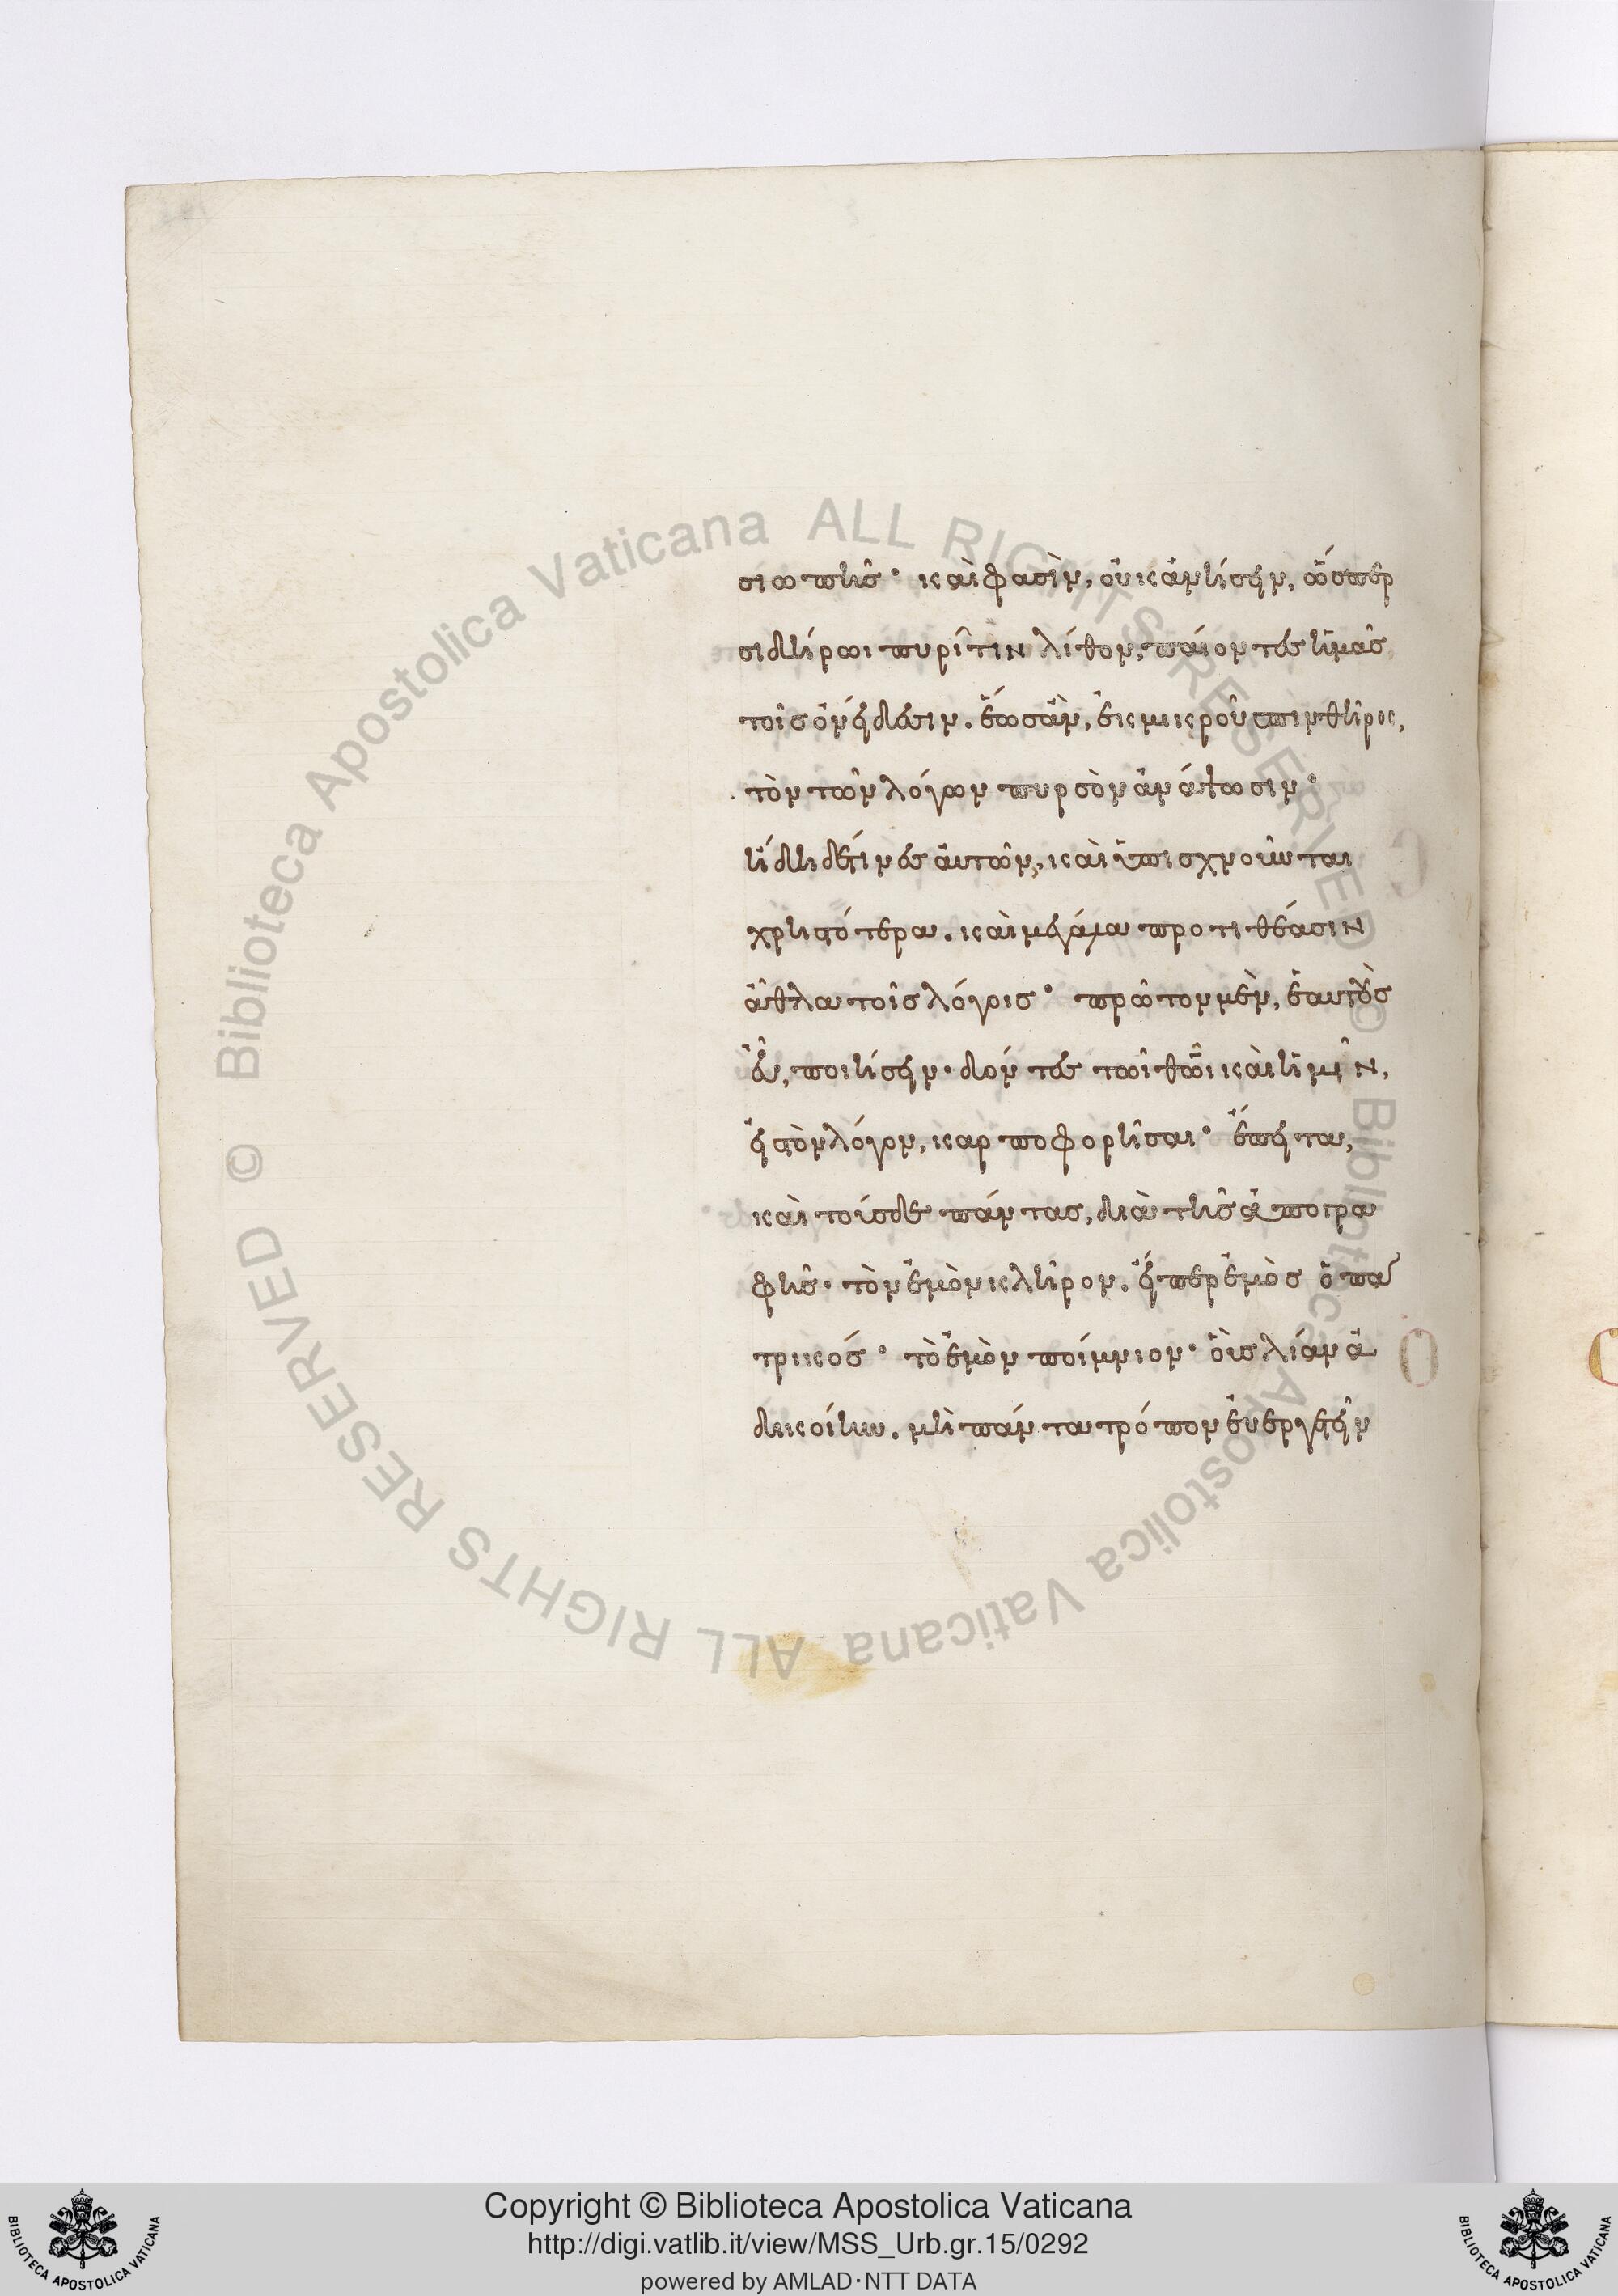 σιωπῆς· καὶ φασὶν, οὐκ ἀνήσειν, ὥσπερ
σιδήρωι πυρῖτιν λίθον, παίοντες ἡμᾶς
τοῖς ὀνείδεσιν. ἕως ἂν, ἐκ μικροῦ σπινθῆρος,
τὸν τῶν λόγων πυρσὸν ἀνάψωσιν·
ἤδη δέ τινες αὐτῶν, καὶ ὑπισχνοῦνται
χρηστότερα. καὶ μεγάλα προτιθέασιν
ἆθλα τοῖς λόγοις· πρῶτον μὲν, ἑαυτοὺς
εὖ, ποιήσειν. δόντες τῶι θῶι καὶ ἡμῖν,
εἰς τὸν λόγον, καρποφορῆσαι· ἔπειτα,
καὶ τούσδε πάντας, διὰ τῆς ἀπογρα
φῆς. τὸν ἐμὸν κλῆρον. εἴπερ ἐμὸς ὁ πα
τρικός· τὸ ἐμὸν ποίμνιον. οὓς λίαν ἀ
δικοίην. μὴ πάντα τρόπον εὐεργετεῖν
Copyright © Biblioteca Apostolica Vaticana
http://digi.vatlib.it/view/MSS_Urb.gr.15/0292
powered by AMLAD·NTT DATA
BIBLIOTECA APOSTOLICA VATICANA
BIBLIOTECA APOSTOLICA VATICANA
© Biblioteca Apostolica Vaticana ALL RIGHTS RESERVED
© Biblioteca Apostolica Vaticana ALL RIGHTS RESERVED